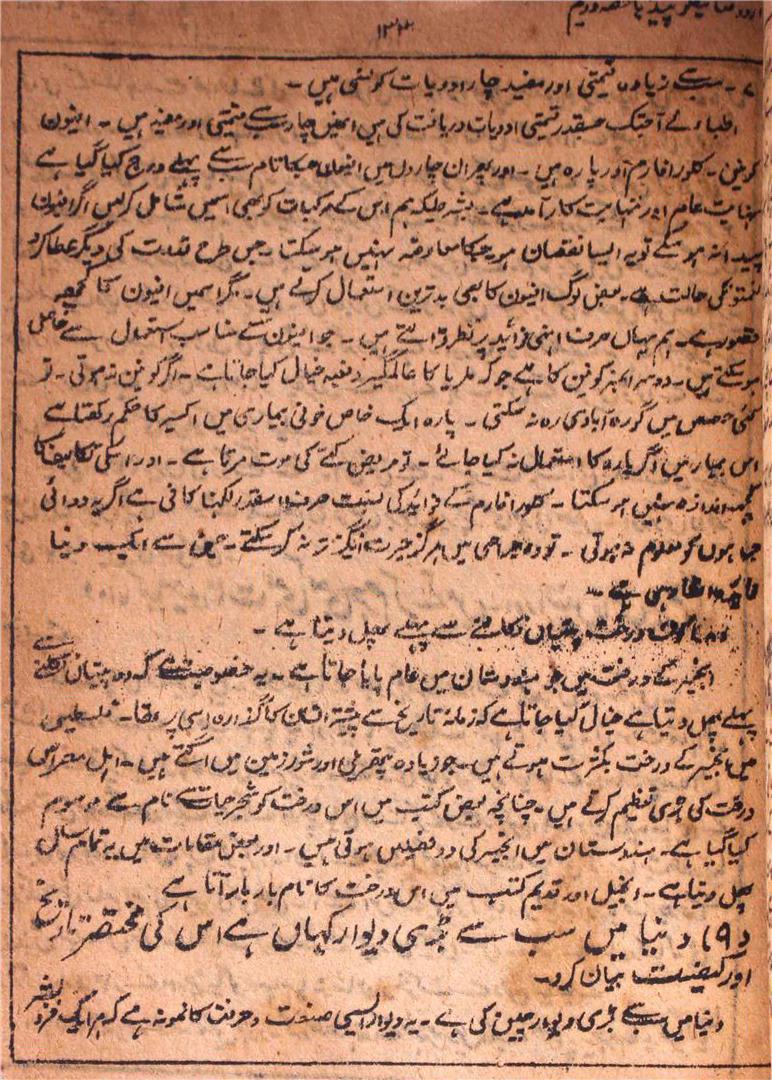 ۱۳۳
۷۔ سب سے زیادہ قیمتی اور مفید چار ادویات کونسی ہیں۔
اطباء نے آجتک جسقدر قیمتی ادویات دریافت کی ہیں انمیں چار سب سے قیمتی اور مفید ہیں۔ افیون
کونین۔ کلورافارم اور پارہ ہیں۔ اور پھر ان چاروں میں افیون جسکا نام سب سے پہلے درج کیا گیا ہے
نہایت عام اور نہایت کارآمد ہے۔ بشرطیکہ ہم اس کے مرکبات کو بھی اسمیں شامل کرلیں اگر افیون
پیدا نہ ہو سکے تو یہ ایسا نقصان ہو جسکا معاوضہ نہیں ہو سکتا۔ جس طرح قدرت کی دیگر عطا کردہ
نعمتونکی حالت ہے۔ بعض لوگ افیون کا بھی بدترین استعمال کرتے ہیں۔ مگر اسمیں افیون کا کچھ
قصور ہے۔ ہم یہاں صرف انہی فوائد پر نظر ڈالتے ہیں۔ جو افیون کے مناسب استعمال سے حاصل
ہو سکتے ہیں۔ دوسرا نمبر کونین کا ہے جو کہ ملریا کا عالمگیر دفعیہ خیال کیا جاتا ہے۔ اگر کونین نہ ہوتی۔ تو
کئی حصص میں گورہ آبادی رہ نہ سکتی۔ پارہ ایک خاص خونی بیماری میں اکسیر کا حکم رکھتا ہے
اس بیماری میں اگر پارہ کا استعمال نہ کیا جائے۔ تو مریض کتے کی موت مرتا ہے۔ اور اسکی تکالیف کا
کچھ اندازہ نہیں ہو سکتا۔ کلورافارم کے فوائد کی نسبت صرف اسقدر لکھنا کافی ہے اگر یہ دوائی
جراحوں کو معلوم نہ ہوتی۔ تو وہ جراحی میں ہرگز حیرت انگیز نہ کر سکتے۔ جن سے ایک دنیا
فائدہ اٹھا رہی ہے۔
کونسا درخت پتیاں نکالنے سے پہلے پھل دیتا ہے۔
انجیر کے درخت میں جو ہندوستان میں عام پایا جاتا ہے۔ یہ خصوصیت ہے کہ وہ پتیاں نکلنے سے
پہلے پھل دیتا ہے خیال کیا جاتا ہے کہ زمانہ تاریخ سے پیشتر انسان کا گذارہ اسی پر تھا۔ فلسطین
میں انجیر کے درخت بکثرت ہوتے ہیں۔ جو زیادہ پتھریلی اور شور زمین میں اگتے ہیں۔ اہل مصر اس
درخت کی بڑی تعظیم کرتے ہیں۔ چنانچہ بعض کتب میں اس درخت کو شجر حیات کے نام سے موسوم
کیا گیا ہے۔ ہندوستان میں انجیر کی دو فصلیں ہوتی ہیں۔ اور بعض مقامات میں یہ تمام سال
پھل دیتا ہے۔ انجیل اور قدیم کتب میں اس درخت کا نام بار بار آتا ہے
(۹) دنیا میں سب سے بڑی دیوار کہاں ہے اس کی مختصر تاریخ
اور کیفیت بیان کرو۔
دنیا میں سب سے بڑی دیوار چین کی ہے۔ یہ دیوار ایسی صنعت و حرفت کا نمونہ ہے کہ ہر ایک فرد بشر